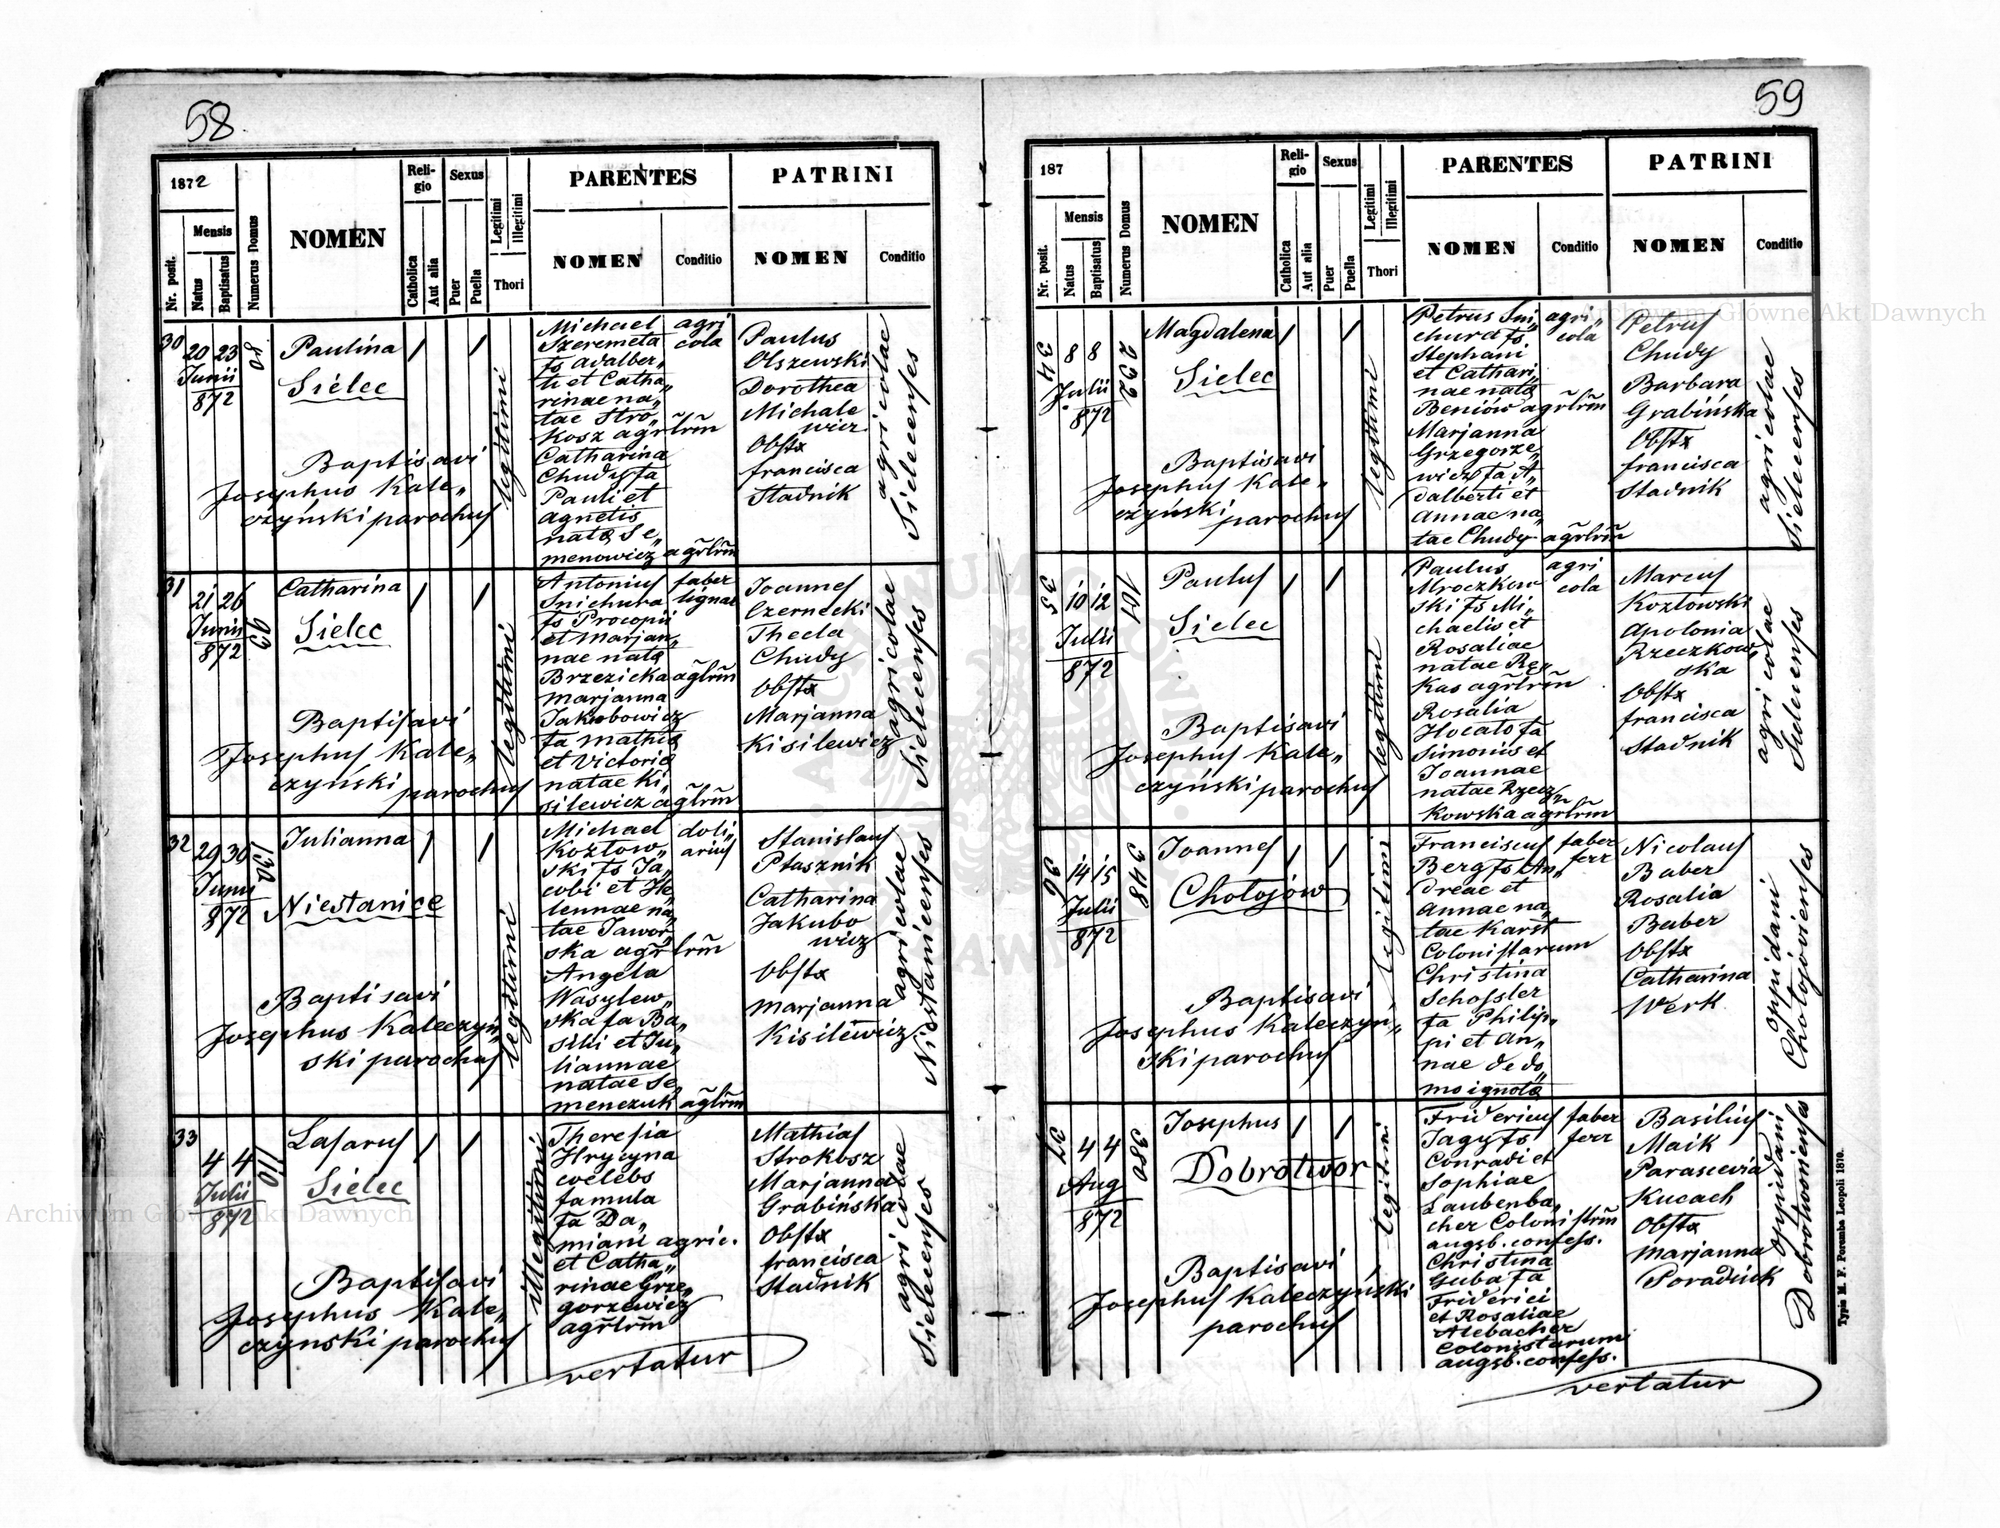 58
1872
Nr. posit.
Mensis
Natus
Baptisatus
Numerus Domus
NOMEN
Reli-
gio
Catholica
Aut alia
Sexus
Puer
Puella
Legitimi
Illegitimi
Thori
PARENTES
NOMEN
Conditio
PATRINI
NOMEN
Conditio
30
20 23
Junii
872
80
Paulina
Sielec
Baptisavi
Josephus Kale„
czyński parochus
legitimi
Michael agri
Szeremeta cola
fs Adalber„
ti et Catha„
rinae na„
tae Stro„
kosz agrlrm
Catharina
Chudy fa
Pauli et
Agnetis
nata Se„
menowicz agrlrm
Paulus
Olszewski
Dorothea
Michale
wicz
Obstx
Francisca
Stadnik
agricolae
Sielecenses
31
21 26
Junii
872
93
Catharina
Sielec
Baptisavi
Josephus Kale„
czyński parochus
legitimi
Antonius faber
Snichura lignar
fs Procopii
et Marjan„
nae nata
Brzezicka agrlrm
Marjanna
Jakubowicz
fa Mathia
et Victoria
natae Ki„
silewicz agrlrm
Joannes
Czernecki
Thecla
Chudy
Obstx
Marjanna
Kisilewicz
agricolae
Sielecenses
32
29 30
Junii
872
132
Julianna
Niestanice
Baptisavi
Josephus Kaleczyń„
ski parochus
legitimi
Michael doli„
Kozłow„ arius
ski fs Ja„
cobi et He„
lennae na„
tae Jawor„
ska agrlrm
Angela
Wasylew„
ska fa Ba„
silii et Ju„
liannae
natae Se„
menczuk agrlrm
Stanislaus
Ptasznik
Catharina
Jakubo
wicz
Obstx
Marjanna
Kisilewicz
agricolae
Niestanicenses
33
4 4
Julii
872
110
Lasarus
Sielec
Baptisavi
Josephus Kale„
czynski parochus
illegitimi
Theresia
Hrycyna
coelebs
famula
fa Da„
miani agric.
et Catha„
rinae Grze„
gorzewicz
agrlrm
Mathias
Strokosz
Marjanna
Grabińska
Obstx
Francisca
Stadnik
agricolae
Sielecenses
vertatur
59
187
Nr. posit.
Mensis
Natus
Baptisatus
Numerus Domus
NOMEN
Reli-
gio
Catholica
Aut alia
Sexus
Puer
Puella
Legitimi
Illegitimi
Thori
PARENTES
NOMEN
Conditio
PATRINI
NOMEN
Conditio
34
8 8
Julii
872
232
Magdalena
Sielec
Baptisavi
Josephus Kale„
czyński
parochus
legitimi
Petrus Sni„ agri„
chura fs cola
Stephani
et Cathari„
nae nata
Beniów agrlrm
Marjanna
Grzegorze„
wicz fa A„
dalberti et
Annae na„
tae Chudy agrlrm
Petrus
Chudy
Barbara
Grabińska
Obstx
Francisca
Stadnik
agricolae
Sielecenses
35
10 12
Julii
872
101
Paulus
Sielec
Baptisavi
Josephus Kale„
czyński parochus
legitimi
Paulus agri
Mroczkow cola
ski fs Mi„
chaelis et
Rosaliae
natae Re„
kas agrlrm
Rosalia
Hocało fa
Simonis et
Joannae
natae Rzecz„
kowska agrlrm
Marcus
Kozłowski
Apolonia
Rzeczkow
ska
Obstx
Francisca
Stadnik
agricolae
Sielecenses
36
14 15
Julii
872
348
Joannes
Chołojów
Baptisavi
Josephus Kaleczyń„
ski parochus
legitimi
Franciscus faber
Berg fs An„ ferr
dreae et
Annae na„
tae Karst
Colonistarum
Christina
Schossler
fa Philip„
pi et An„
nae de do„
mo ignota
Nicolaus
Baber
Rosalia
Baber
Obstx
Catharina
Werk
oppidani
Chołojovienses
37
4 4
Aug
872
380
Josephus
Dobrotwor
Baptisavi
Josephus Kaleczyński
parochus
legitimi
Fridericus faber
Jagy fs ferr
Conradi et
Sophiae
Laubenba„
cher Colonistrm
augsb. confess.
Christina
Guba fa
Friderici
et Rosaliae
Alebacher
Colonistarum
augsb. confess.
Basilius
Maik
Parascevia
Kucach
Obstx
Marjanna
Poradiuk
oppidani
Dobrotworienses
vertatur
Typis M. F. Poremba Leopoli 1870.
Archiwum Główne Akt Dawnych
Archiwum Główne Akt Dawnych